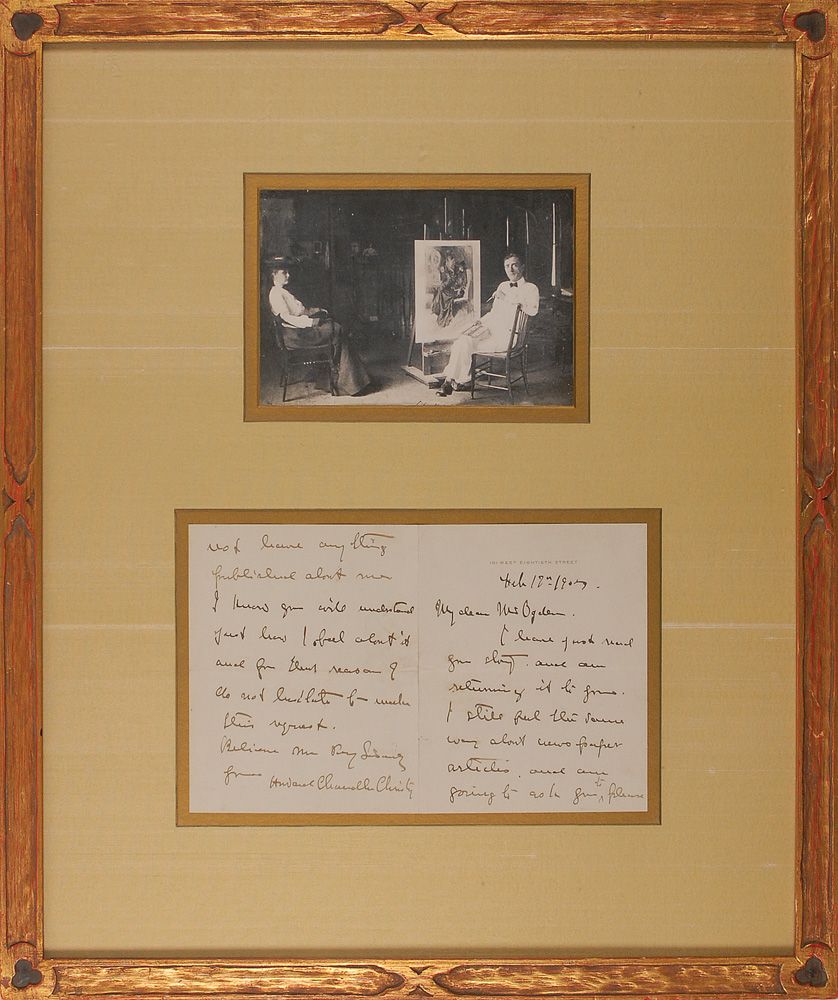 WEST EIGHTIETH STREET
Feb 17th 190
My dear Mr Ogden.
I have just read
your story. and am
returning it to you.
I still feel the same
way about newspaper
articles. and am
going to ask you to please
not have anything
published about me
I know you will understand
just how I feel about it
and for that reason I
do not hesitate to make
this request.
Believe me Very Sincerely
yours Howard Chandler Christy